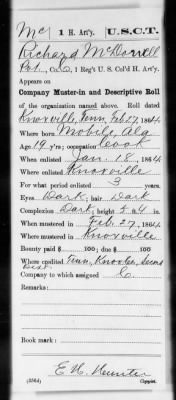 Mc | 1 H. Art'y. | U.S.C.T.
Richard McDorrell
Pvt., Co. C, 1 Reg't U. S. Col'd H. Art'y.
Appears on
Company Muster-in and Descriptive Roll
of the organization named above. Roll dated
Knoxville, Tenn, Feb 27, 1864.
Where born Mobile, Ala
Age 19 y'rs; occupation Cook
When enlisted Jan. 18, 1864
Where enlisted Knoxville
For what period enlisted 3 years.
Eyes Dark; hair Dark
Complexion Dark; height 5 ft. 4 in.
When mustered in Feb. 27, 1864
Where mustered in Knoxville
Bounty paid $ 100; due $ 100
Where credited Tenn, Knoxville,
Dist.
Company to which assigned C
Remarks:
Book mark:
E. K. Hunter
(356d) Copyist.